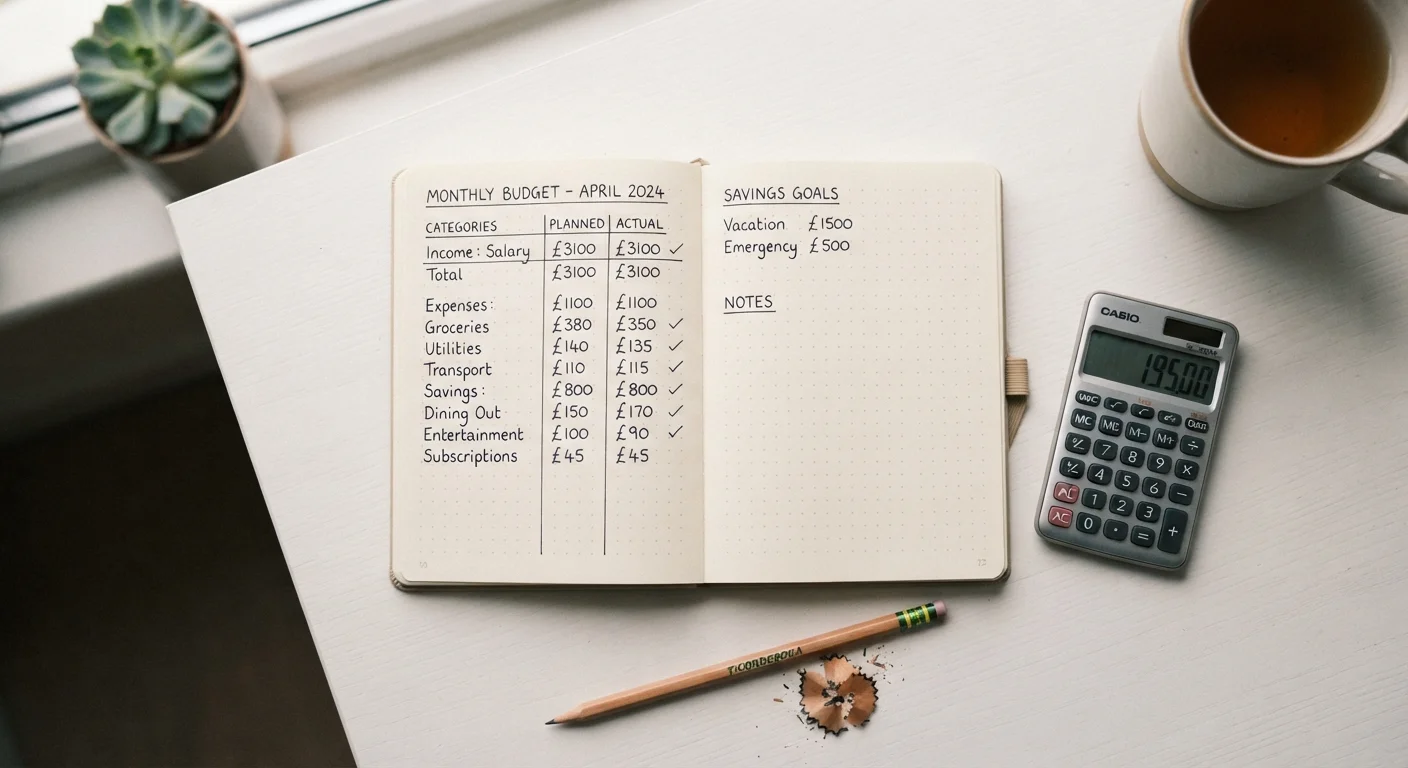 MONTHLY BUDGET – APRIL 2024
CATEGORIES PLANNED ACTUAL
Income: Salary £3100 £3100 ✓
Total £3100 £3100
Expenses: £1100 £1100
Groceries £380 £350 ✓
Utilities £140 £135 ✓
Transport £110 £115 ✓
Savings: £800 £800 ✓
Dining Out £150 £170 ✓
Entertainment £100 £90 ✓
Subscriptions £45 £45
SAVINGS GOALS
Vacation £1500
Emergency £500
NOTES
CASIO
195.00
MC M- M+ ÷
% 7 8 9 ×
4 5 6 −
AC 1 2 3
AC 0 · = +
TICONDEROGA